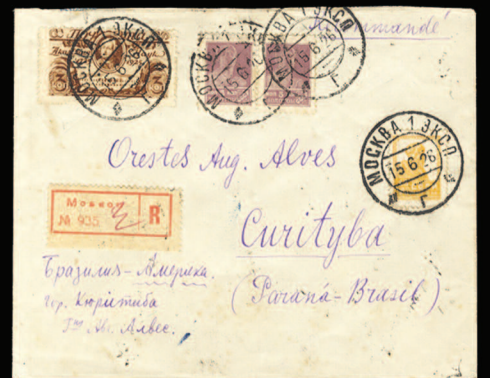 Recommandé
МОСКВА 1 ЭКСП.
15 6 26
Г
МОСКВА 1 ЭКСП.
15 6 26
Г
МОСКВА 1 ЭКСП.
15.6.26
Г
Orestes Aug. Alves
Москва
№ 935
R
Curityba
(Paraná-Brasil)
Бразилия-Америка.
гор. Кюритиба
Гну Авг. Алвес.